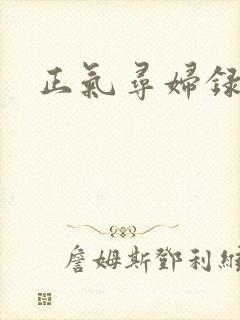 正氣尋婦録
詹姆斯鄧利維